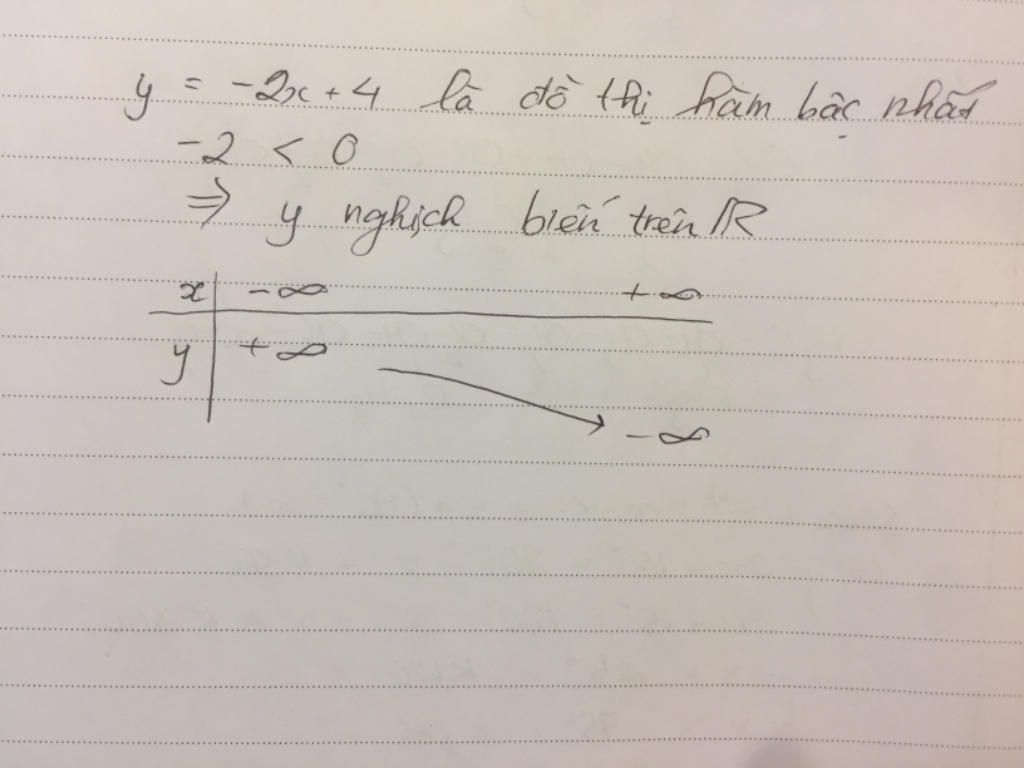 y = -2x + 4 là đồ thị hàm bậc nhất
-2 < 0
⇒ y nghịch biến trên ℝ
x -∞ +∞
y +∞
-∞